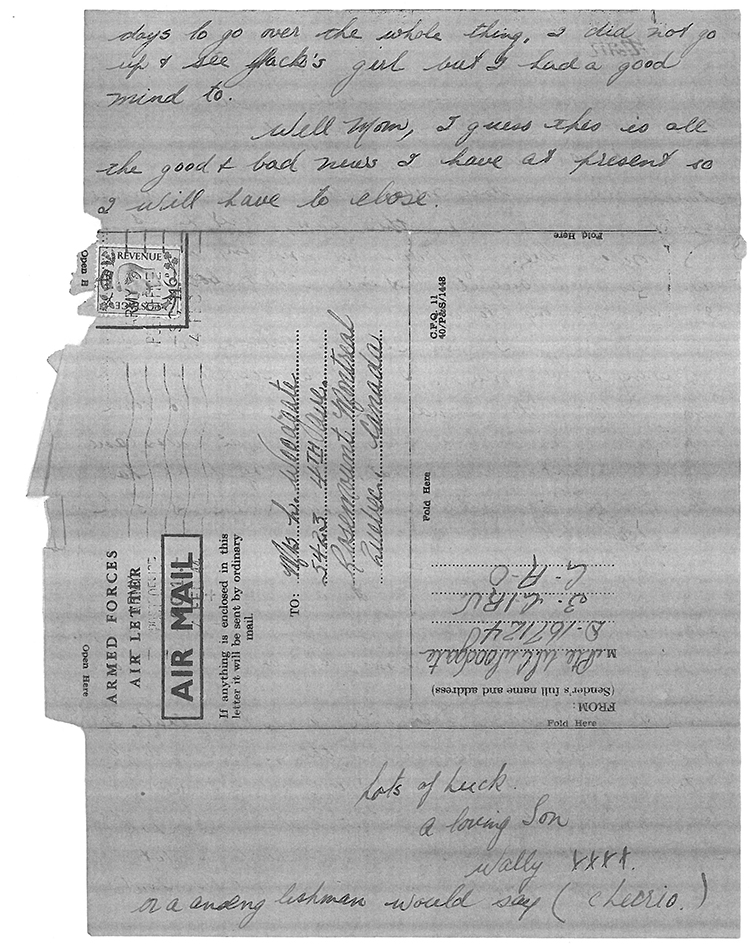 days to go over the whole thing, I did not go
up & see Jack's girl but I had a good
mind to.
Well Mom, I guess thes is all
the good & bad news I have at present so
I will have to close.
Open H
REVENUE
POSTAGE
Fold Here
C.F.Q. 11
40/P&S/1448
ARMED FORCES
AIR LETTER
AIR MAIL
If anything is enclosed in this
letter it will be sent by ordinary
mail.
TO: Mrs L. Woodgate
5423 4TH Ave.
Rosemount Montreal
Quebec Canada
Fold Here
Open Here
FROM:
(Sender's full name and address)
Pte W Woodgate
D-167124
3-CIRU
C A O
Fold Here
Lots of Luck.
a loving Son
Wally XXXX.
or a aneng lishman would say (cheerio.)